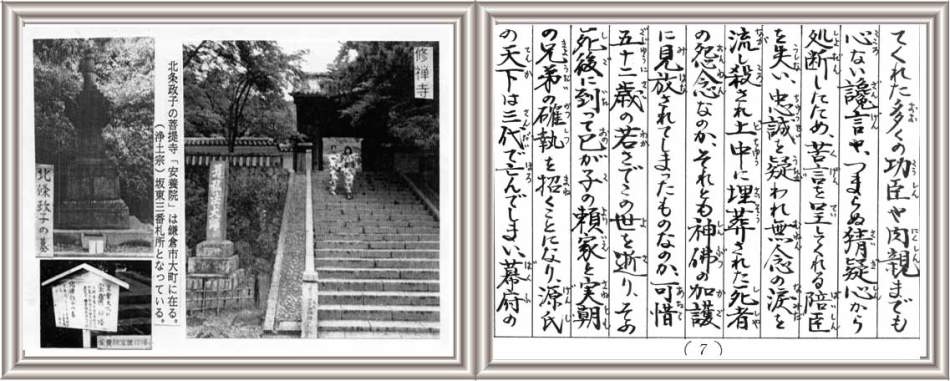 てくれた多くの功臣や肉親までも
心ない讒言や、つまらぬ猜疑心から
処断したため、苦言を呈してくれる陪臣
を失い、忠誠を疑われ無念の涙を
流し殺され土中に埋葬された死者
の怨念なのか、それとも神佛の加護
に見放されてしまったものなのか、可惜
五十二歳の若さでこの世を逝り、その
死後に到って己が子の頼家と実朝
の兄弟の確執を招くことになり、源氏
の天下は三代で亡んでしまい、幕府の
(7)
修禅寺
北条政子の菩提寺「安養院」は鎌倉市大町に在る。
(浄土宗)坂東三番札所となっている。
北條政子の墓
安養院宝篋印塔